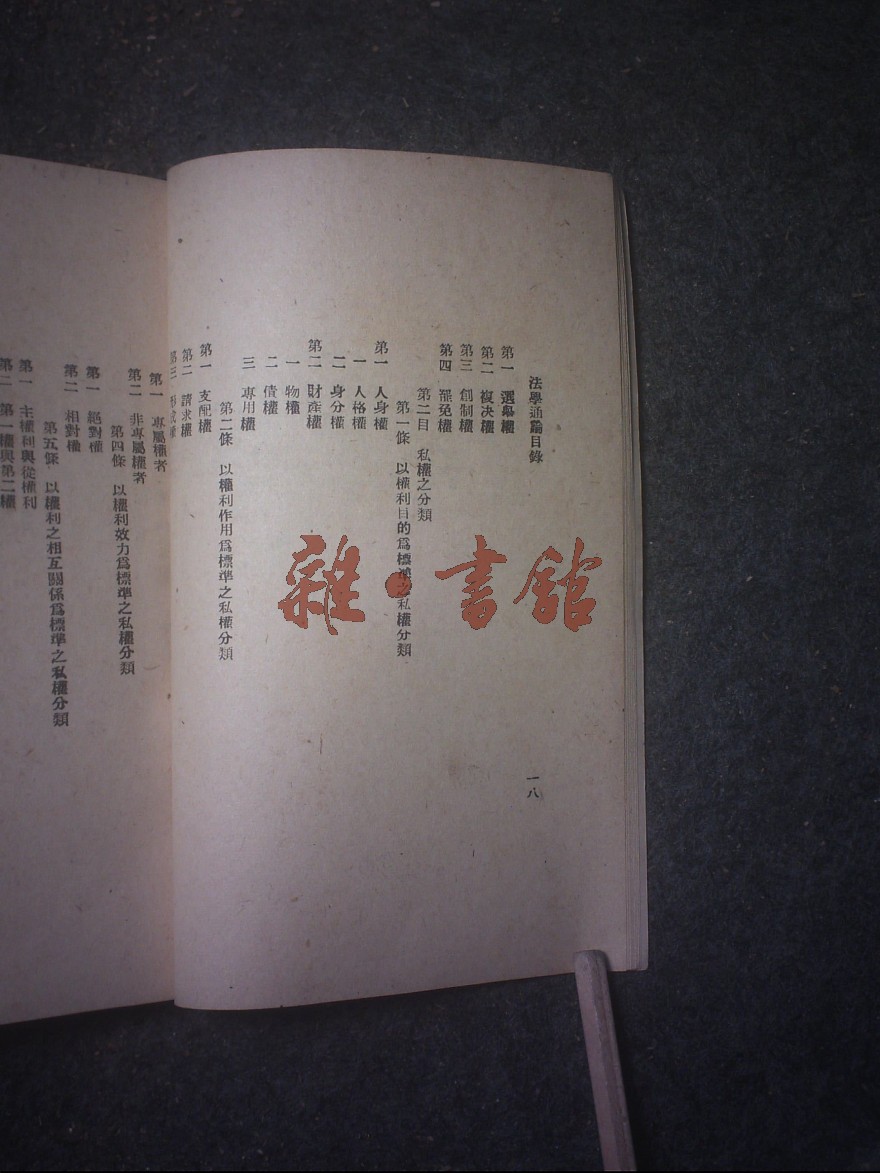 法學通論目錄
第一 選舉權
第二 複决權
第三 創制權
第四 罷免權
第二目 私權之分類
第一條 以權利目的爲標準之私權分類
第一 人身權
一 人格權
二 身分權
第二 財產權
一 物權
二 債權
三 專用權
第二條 以權利作用爲標準之私權分類
第一 支配權
第二 請求權
第三 形成權
一八
第一 專屬權者
第二 非專屬權者
第四條 以權利效力爲標準之私權分類
第一 絕對權
第二 相對權
第五條 以權利之相互關係爲標準之私權分類
第一 主權利與從權利
第二 第一權與第二權
雜·書館